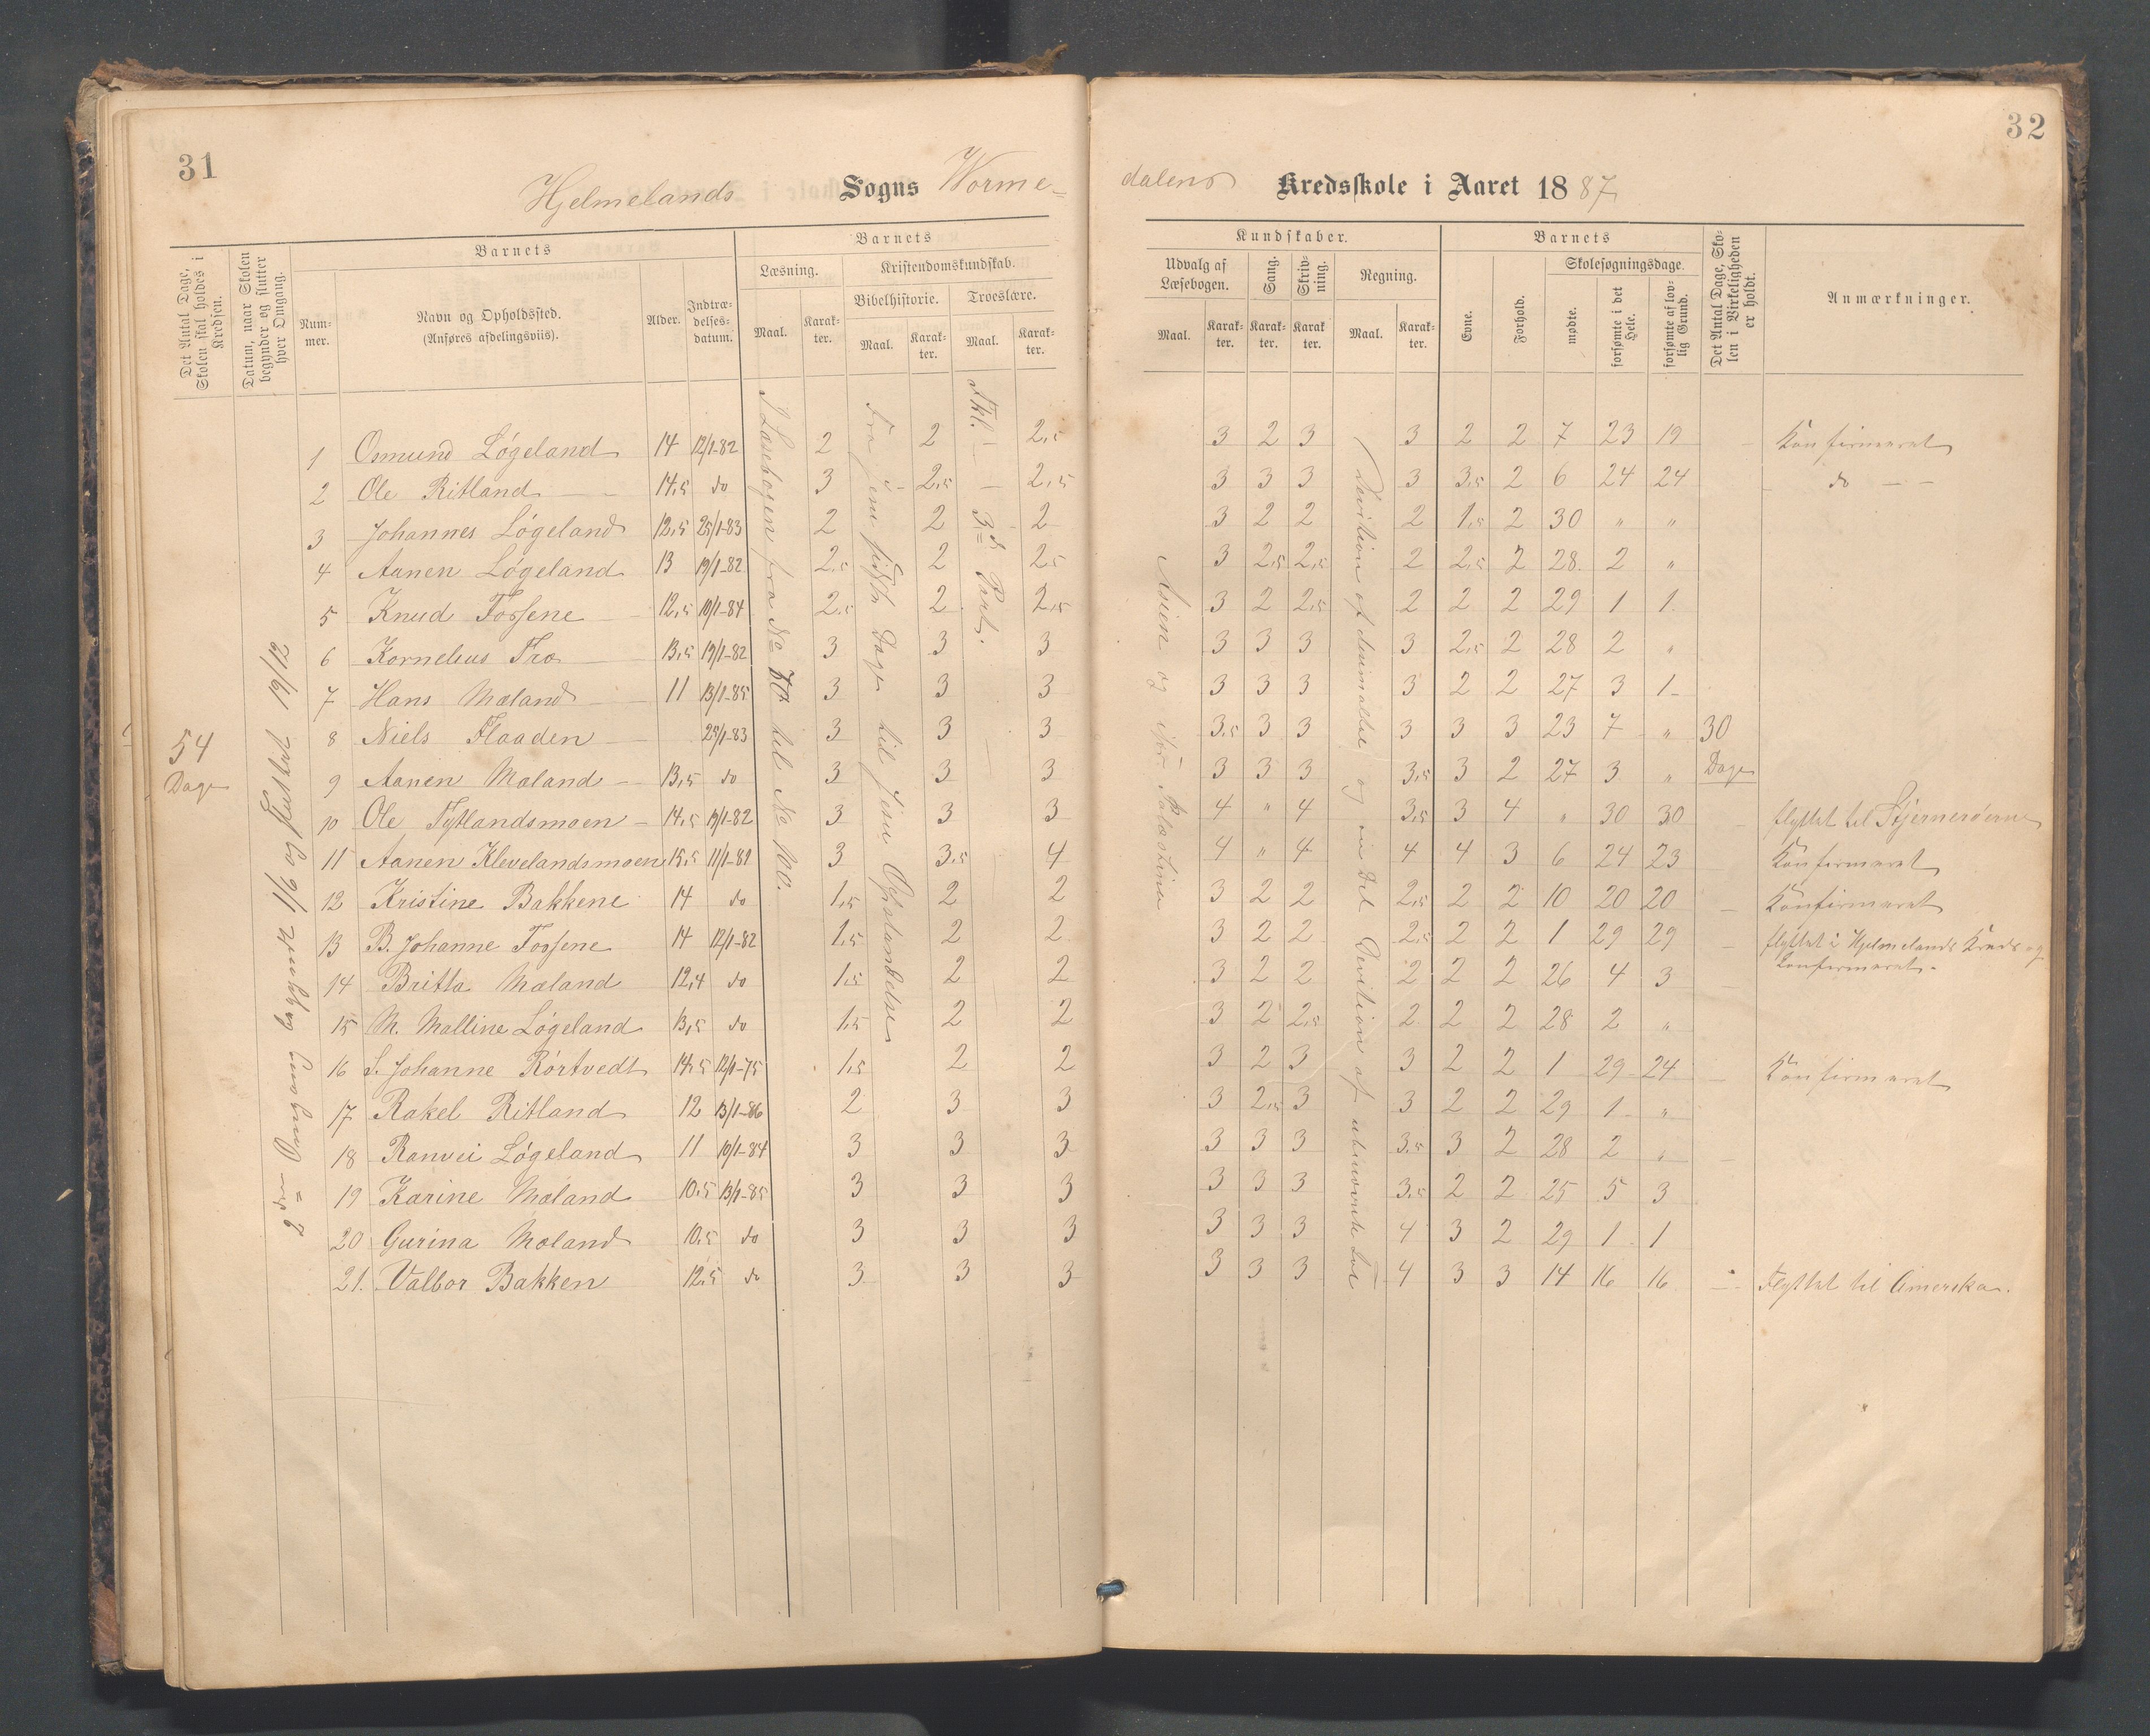 31
32
Hjelmelands Sogns Vorme=
dalens Kredsskole i Aaret 1887
Det Antal Dage, Skolen skal holdes i Kredsen.
Datum, naar Skolen begynder og slutter hver Omgang.
Barnets
Num-mer.
Navn og Opholdssted.
(Anføres afdelingsviis).
Alder.
Indtræ-delses-datum.
Barnets
Læsning.
Kristendomskundskab.
Bibelhistorie.
Troeslære.
Maal. Karak-ter. Maal. Karak-ter. Maal. Karak-ter.
Kundskaber.
Udvalg af Læsebogen.
Sang.
Skriv-ning.
Regning.
Maal. Karak-ter. Karak-ter. Karak ter. Maal. Karak-ter.
Barnets
Evne.
Forhold.
Skolesøgningsdage.
mødte.
forsømte i det Hele.
forsømte af lov-lig Grund.
Det Antal Dage, Sko-len i Virkeligheden er holdt.
Anmærkninger.
54
Dage
2den Omgang begyndt 1/6 og sluttet 19/12
I Læsebogen fra No 70 til No 110.
Fra Jesu sidste Dage til Jesu Opstandelse
Tkl. 3die Part.
Asien og især Palæstina
Devition af desimaltal og en Del Devition af ubenævnte tal
1 Osmund Løgeland 14 12/1-82 2 2 2,5 3 2 3 3 2 2 7 23 19 Konfirmeret
2 Ole Ritland 14,5 do 3 2,5 2,5 3 3 3 3 3,5 2 6 24 24 do
3 Johannes Løgeland 12,5 25/1-83 2 2 2 3 2 2 2 1,5 2 30 " "
4 Aanen Løgeland 13 19/1-82 2,5 2 2,5 3 2,5 2,5 2 2,5 2 28 2 "
5 Knud Fossene 12,5 10/1-84 2,5 2 2,5 3 2 2,5 2 2 2 29 1 1
6 Kornelius Fro 13,5 19/1-82 3 3 3 3 3 3 3 2,5 2 28 2 "
7 Hans Mæland 11 13/1-85 3 3 3 3 3 3 3 2 2 27 3 1
8 Niels Flaaden 25/1-83 3 3 3 3,5 3 3 3 3 3 23 7 " 30
9 Aanen Mæland 13,5 do 3 3 3 3 3 3 3,5 3 2 27 3 " Dage
10 Ole Tytlandsmoen 14,5 19/1-82 3 3 3 4 " 4 3,5 3 4 " 30 30 flyttet til Stjernerøerne
11 Aanen Klevelandsmoen 15,5 11/1-81 3 3,5 4 4 " 4 4 4 3 6 24 23 Konfirmeret
12 Kristine Bakkene 14 do 1,5 2 2 3 2 2 2,5 2 2 10 20 20 Konfirmeret
13 B. Johanne Fossene 14 12/1-82 1,5 2 2 3 2 2 2,5 2 2 1 29 29 flyttet i Hjelmelands Kreds og Konfirmeret.
14 Britta Mæland 12,4 do 1,5 2 2 3 2 2 2 2 2 26 4 3
15 M. Malline Løgeland 13,5 do 1,5 2 2 3 2 2,5 2 2 2 28 2 "
16 S. Johanne Rörtvedt 14,5 12/1-75 1,5 2 2 3 2 3 3 2 2 1 29 24 Konfirmeret
17 Rakel Ritland 12 13/1-86 2 3 3 3 2,5 3 3 2 2 29 1 "
18 Ranvei Løgeland 11 10/1-84 3 3 3 3 3 3 3,5 3 2 28 2 "
19 Karine Mæland 10,5 13/1-85 3 3 3 3 3 3 3,5 2 2 25 5 3
20 Gurina Mæland 10,5 do 3 3 3 3 3 3 4 3 2 29 1 1
21. Valbor Bakken 12,5 do 3 3 3 3 3 3 4 3 3 14 16 16 Flyttet til Amerska.